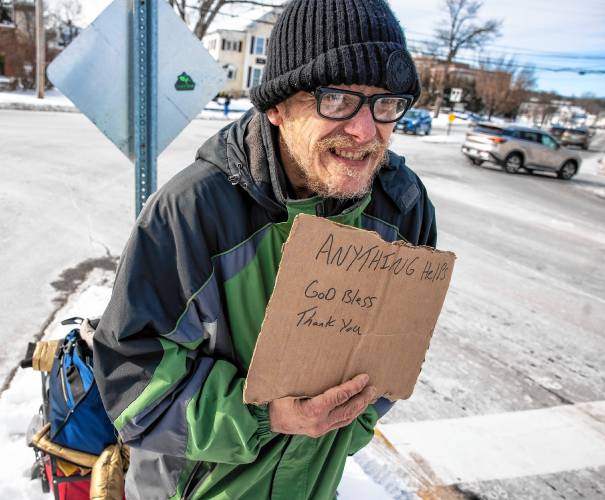 ANYTHING HELPS
GOD Bless
Thank You